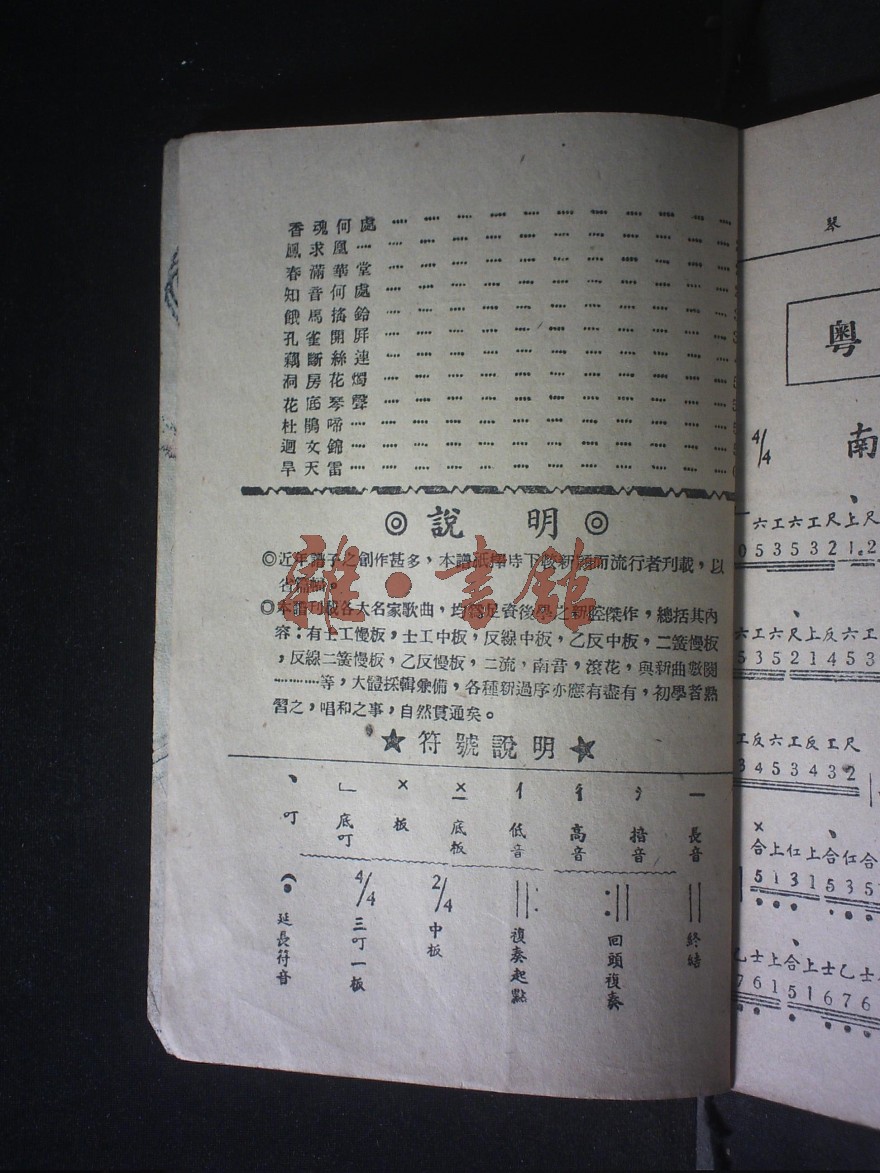 香魂何處
鳳求凰
春滿華堂
知音何處
餓馬搖鈴
孔雀開屏
藕斷絲連
洞房花燭
花底琴聲
杜鵑啼
迴文錦
旱天雷
◎說明◎
◎近年譜子之創作甚多,本譜祇擇時下較新穎而流行者刊載,以
省篇幅。
◎本譜刊載各大名家歌曲,均為足資後學之新腔傑作,總括其內
容:有士工慢板,士工中板,反線中板,乙反中板,二簧慢板
,反線二簧慢板,乙反慢板,二流,南音,滾花,與新曲數闋
…………等,大體採輯兼備,各種新過序亦應有盡有,初學者熟
習之,唱和之事,自然貫通矣。
★符號說明★
丶 叮
∟ 底叮
× 板
底板
亻 低音
彳 高音
掯音
一 長音
延長符音
4/4 三叮一板
2/4 中板
複奏起點
回頭複奏
終結
琴
粵
4/4 南
六工六工尺上尺
0 5 3 5 3 2 1. 2
六工六尺上反六工
5 3 5 2 1 4 5 3
工反六工反工尺
3 4 5 3 4 3 2
合上仜上合仜合
5 1 3 1 5 3 5
乙士上合上士乙士
7 6 1 5 1 6 7 6
雜·書館